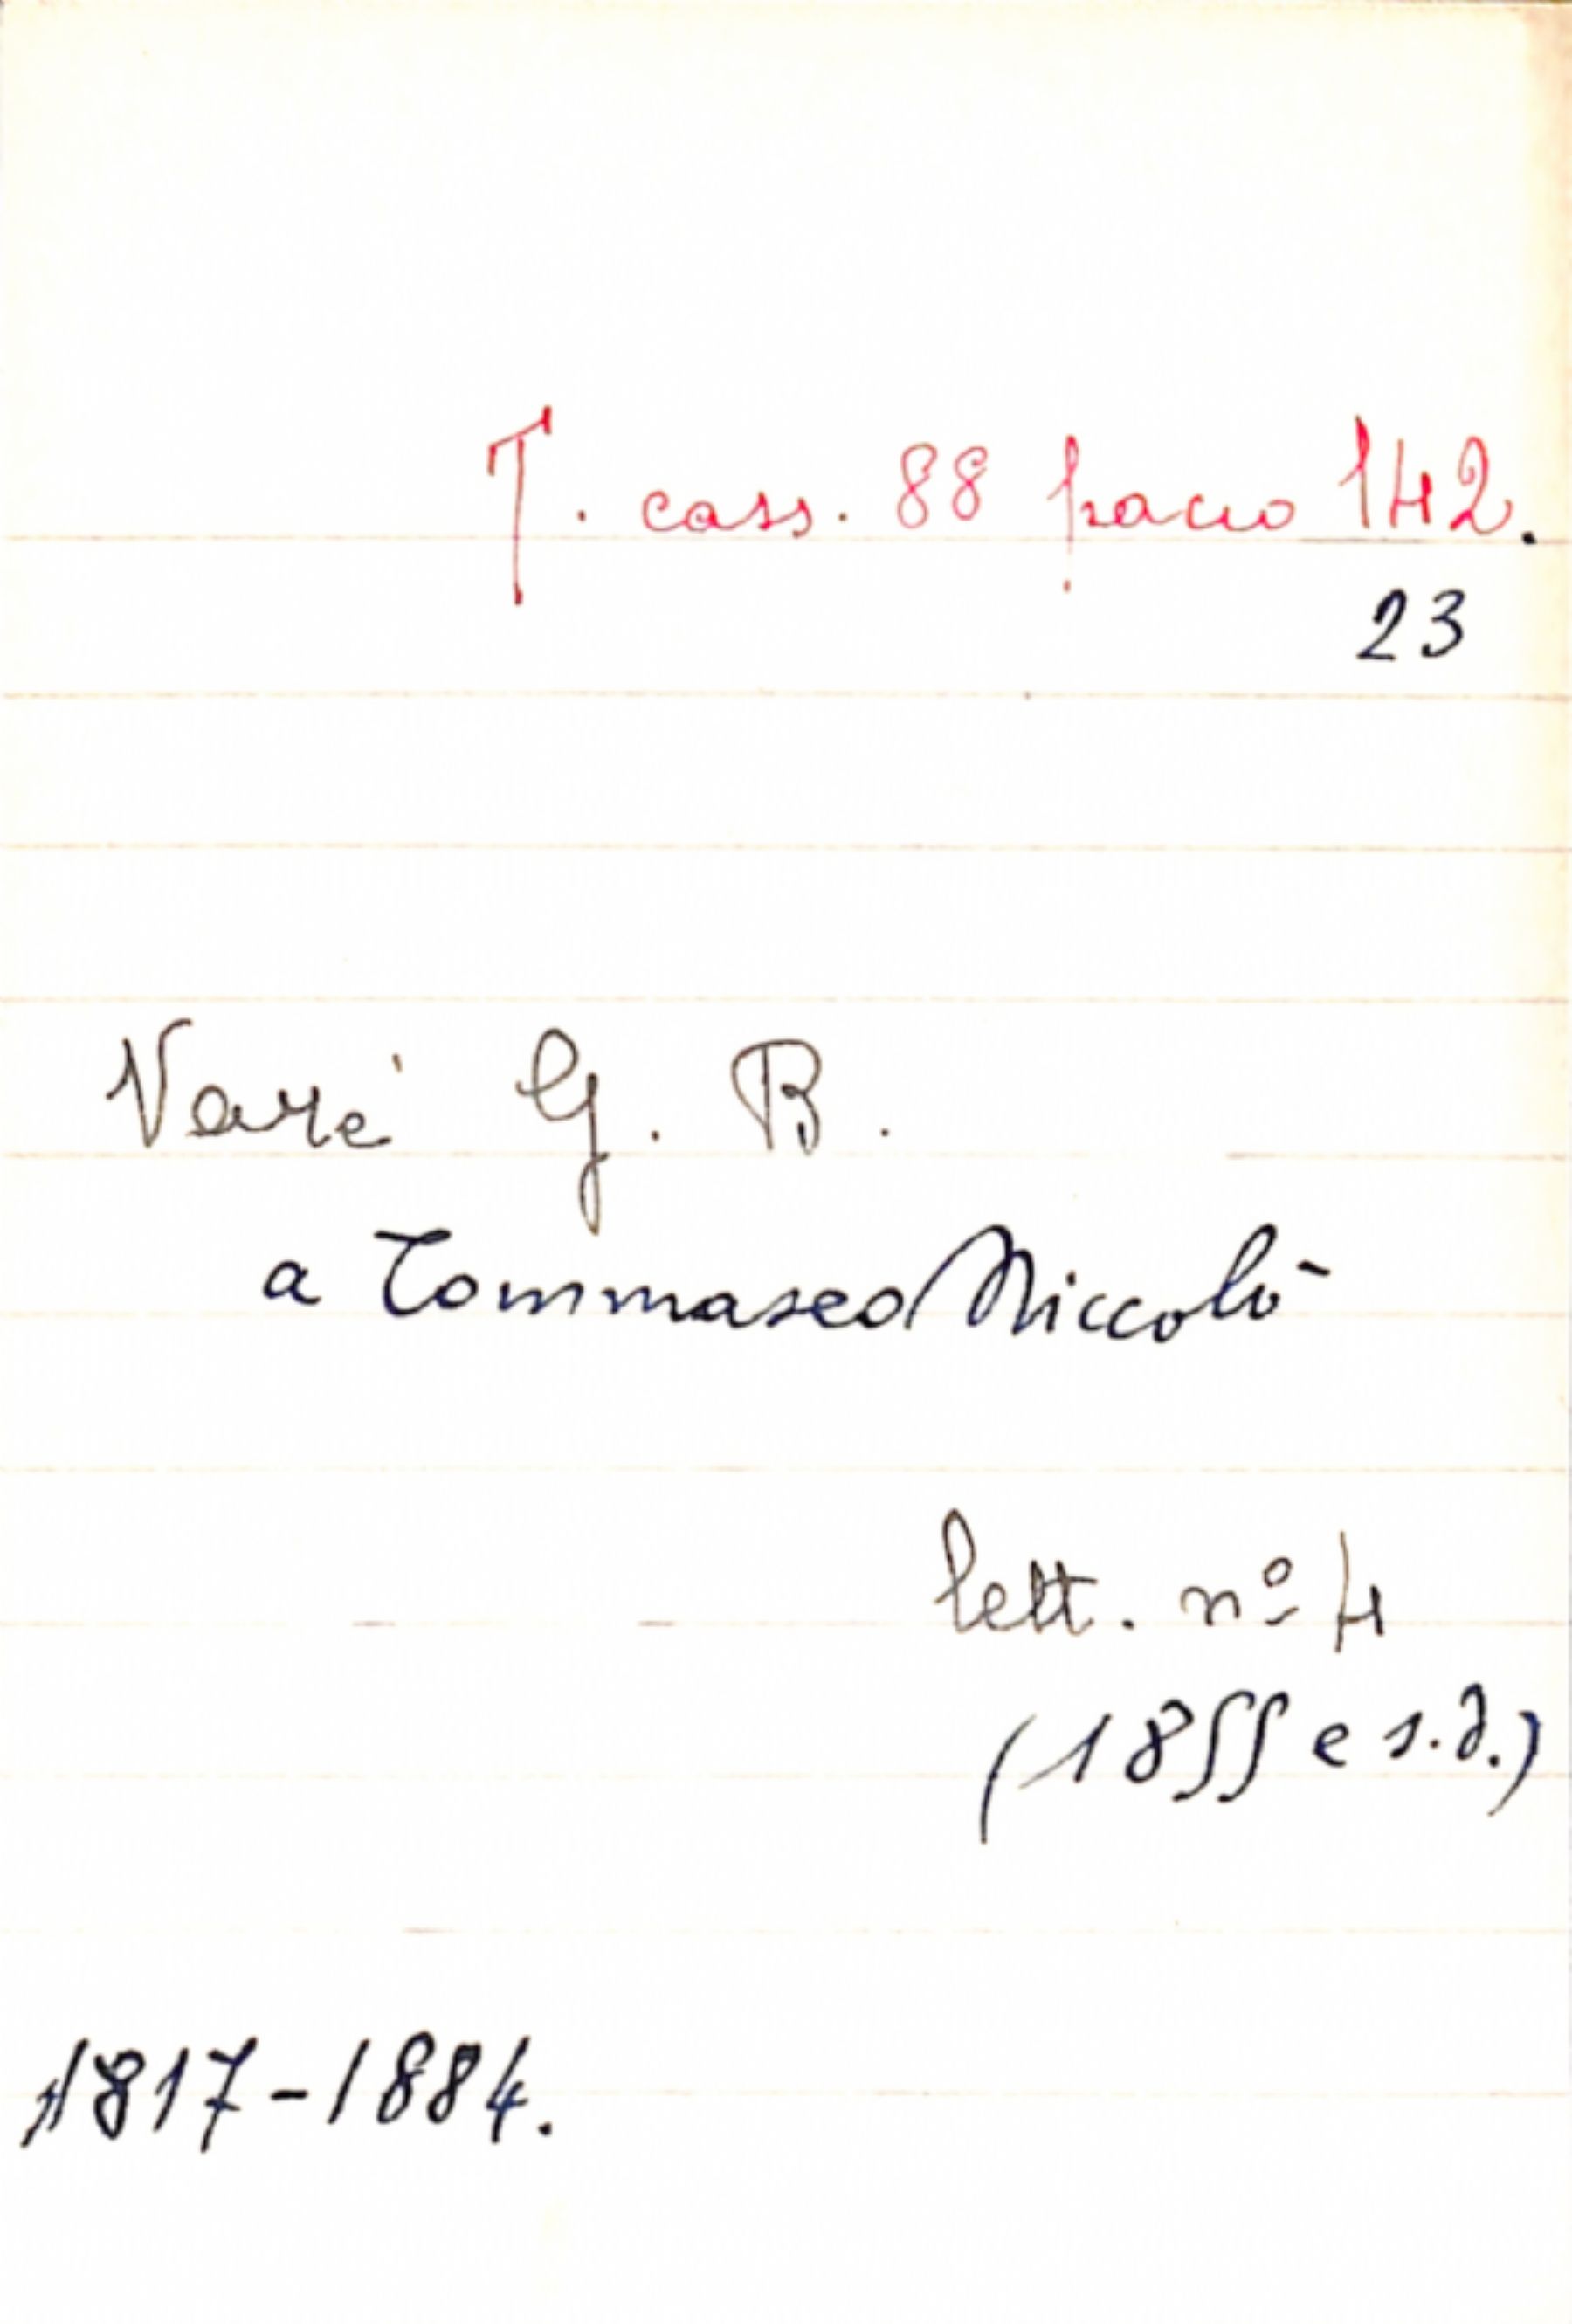 T. cass. 88 pacco 142.
23
Varè G. B.
a Tommaseo Niccolò
lett. nº 4
(1855 e s.d.)
1817-1884.